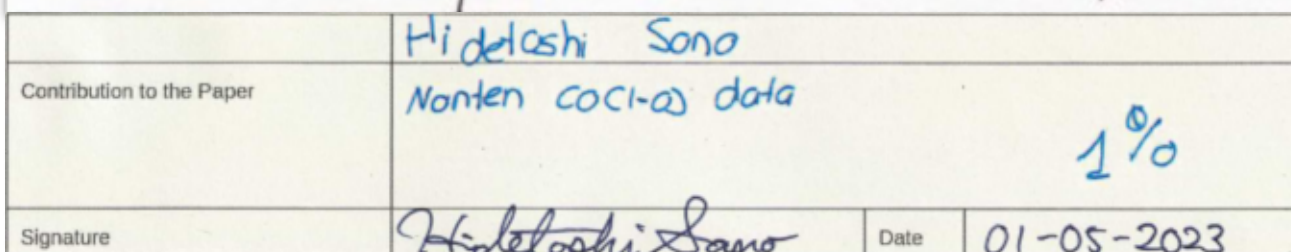 Hidetoshi Sano
Contribution to the Paper
Nanten CO(1-0) data
1%
Signature
Hidetoshi Sano
Date
01-05-2023